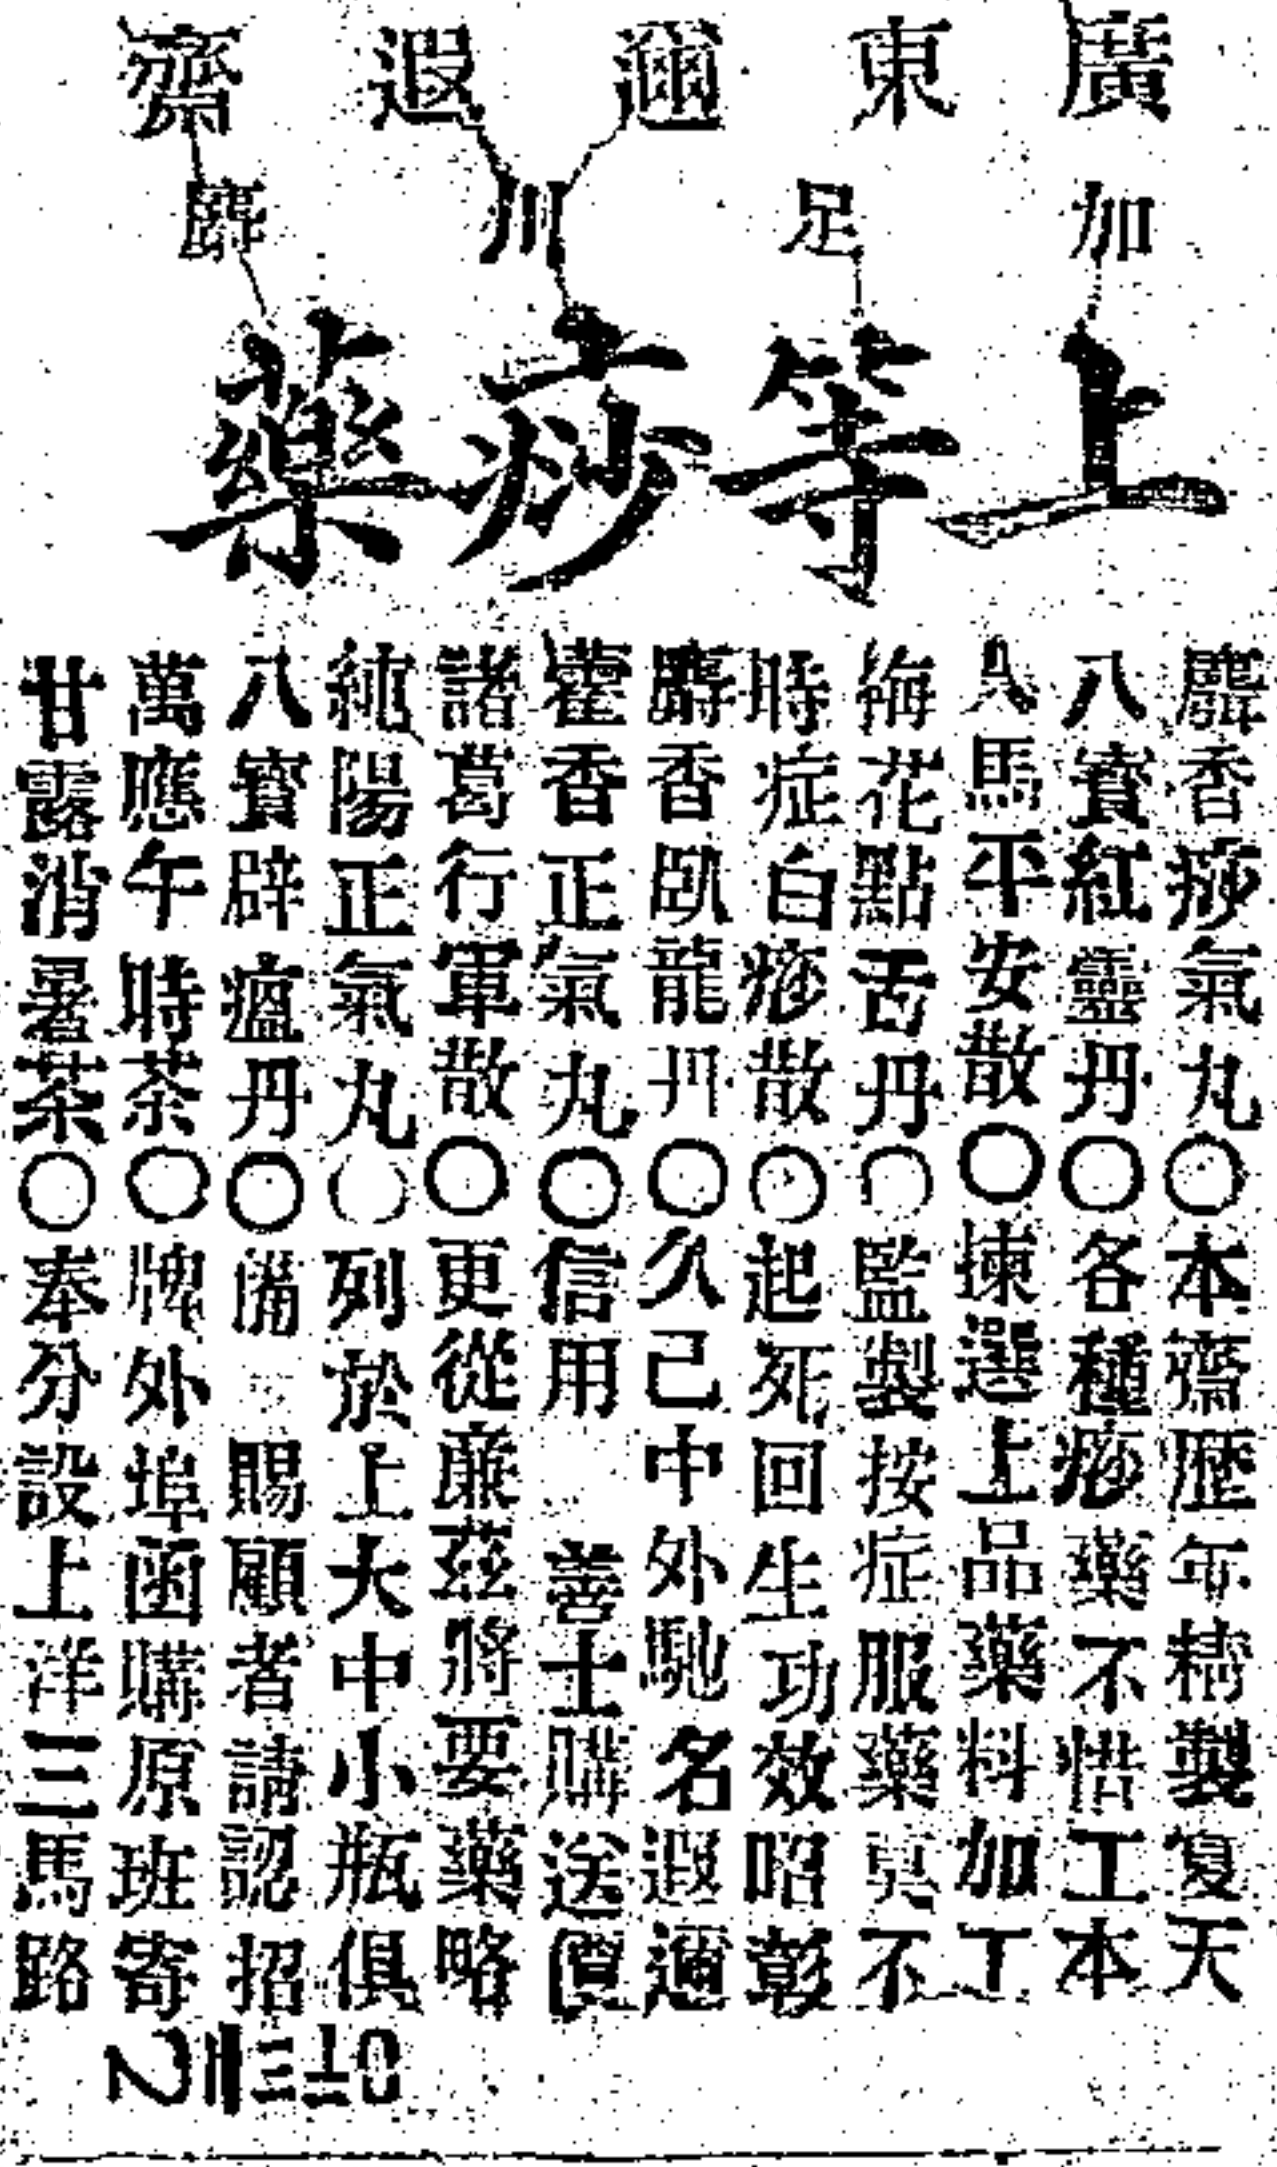 廣東邇遐齋
加足川麝
上等痧藥
麝香痧氣丸○本齋歷年精製夏天
八寶紅靈丹○各種痧藥不惜工本
人馬平安散○揀選上品藥料加工
梅花點舌丹○監製按症服藥莫不
時症白痧散○起死回生功效昭彰
麝香臥龍丹○久已中外馳名遐邇
藿香正氣丸○信用 善士購送價
諸葛行軍散○更從廉茲將要藥略
純陽正氣丸○列於上大中小瓶俱
八寶辟瘟丹○備 賜顧者請認招
萬應午時茶○牌外埠函購原班寄
甘露消暑茶○奉分設上洋三馬路